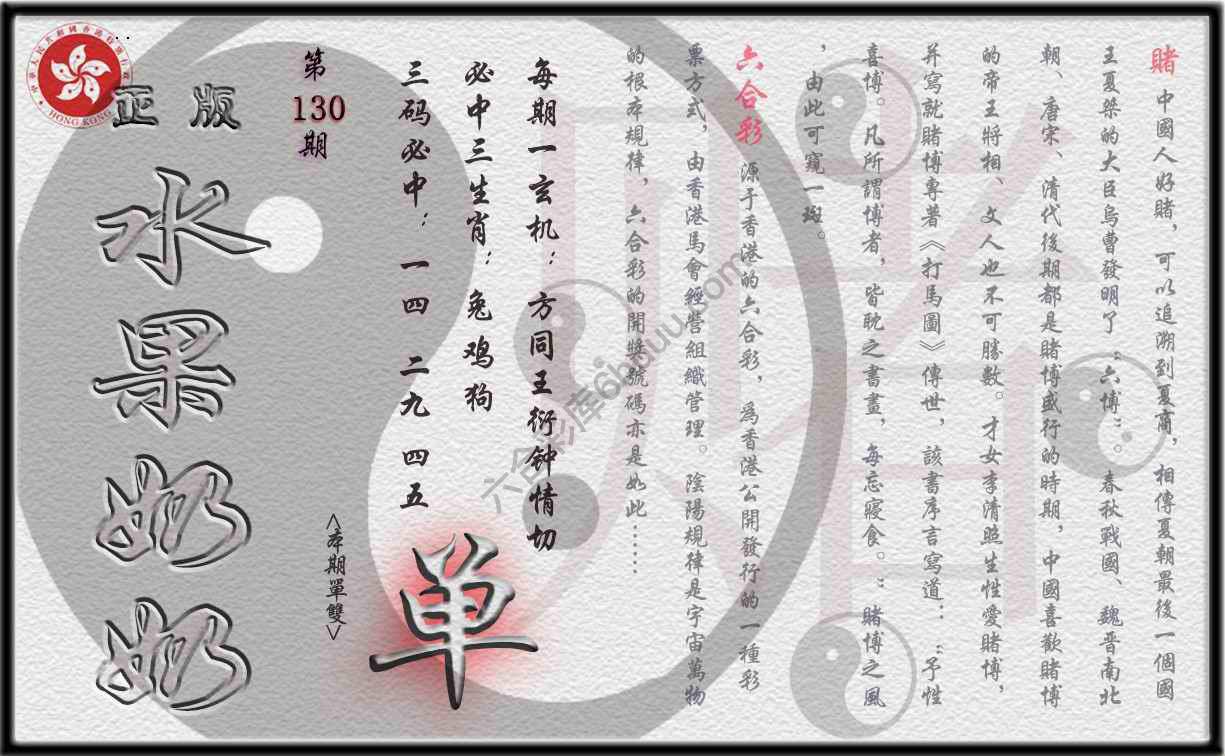 賭 中國人好賭，可以追溯到夏商，相傳夏朝最後一個國
王夏桀的大臣烏曹發明了“六博”。春秋戰國、魏晋南北
朝、唐宋、清代後期都是賭博盛行的時期，中國喜歡賭博
的帝王將相、文人也不可勝數。才女李清照生性愛賭博，
并寫就賭博專著《打馬圖》傳世，該書序言寫道：“予性
喜博。凡所謂博者，皆耽之書畫，每忘寢食。”賭博之風
，由此可窺一斑。
六合彩 源于香港的六合彩，爲香港公開發行的一種彩
票方式，由香港馬會經營組織管理。陰陽規律是宇宙萬物
的根本規律，六合彩的開獎號碼亦是如此……
每期一玄机：方同王衍钟情切
必中三生肖：兔鸡狗
三码必中：一四 二九 四五
单
<本期單雙>
第
130
期
正版
水果奶奶
HONG KONG
六合彩库6hduu.com